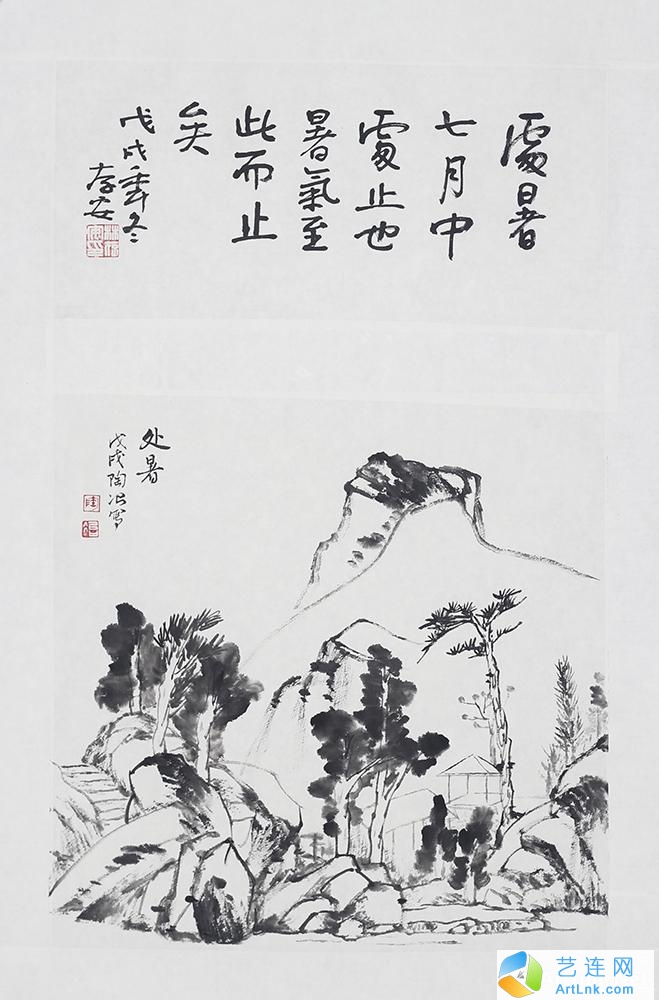 處暑
七月中
處止也
暑氣至
此而止
矣
戊戌年冬
存安
处暑
戊戌陶 写
艺连网
ArtLnk.com